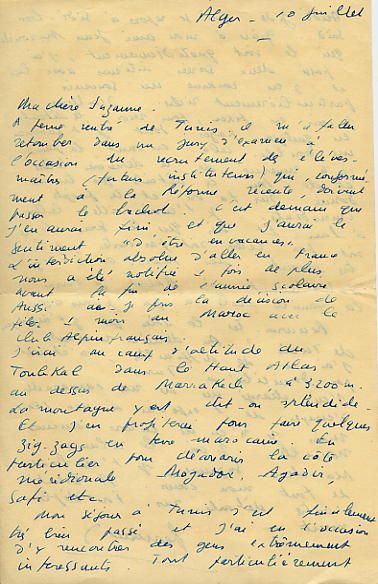 Alger - 10 juillet
Ma chère Suzanne.
A peine rentré de Tunis il m'a fallu
retomber dans un jury d'examen à
l'occasion du recrutement de élèves-
maîtres (futurs instituteurs) qui, conformé
ment à la Réforme récente doivent
passer le bachot. C'est demain que
j'en aurai fini et que j'aurai le
sentiment "d'être en vacances".
L'interdiction absolue d'aller en France
nous a été notifiée 1 fois de plus
avant la fin de l'année scolaire
Aussi ai-je pris la décision de
filer 1 mois au Maroc avec le
Club Alpin français
J'irai au camp d'altitude du
Toubkal dans le Haut Atlas
au dessus de Marrakech à 3200 m.
La montagne y est dit-on splendide.
Et j'en profiterai pour faire quelques
zig-zags en terre marocaine. En
particulier pour découvrir la côte
méridionale Mogador, Agadir,
Safi etc.
Mon séjour à Tunis s'est finalement
très bien passé et j'ai eu l'occasion
d'y rencontrer des gens extrêmement
intéressants. Tout particulièrement